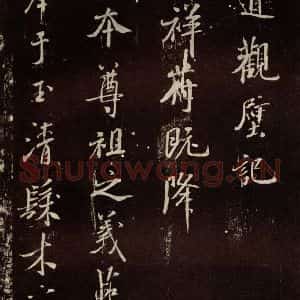 道觀壁記
祥降
本尊祖之義
于玉清木
Shufawang.CN